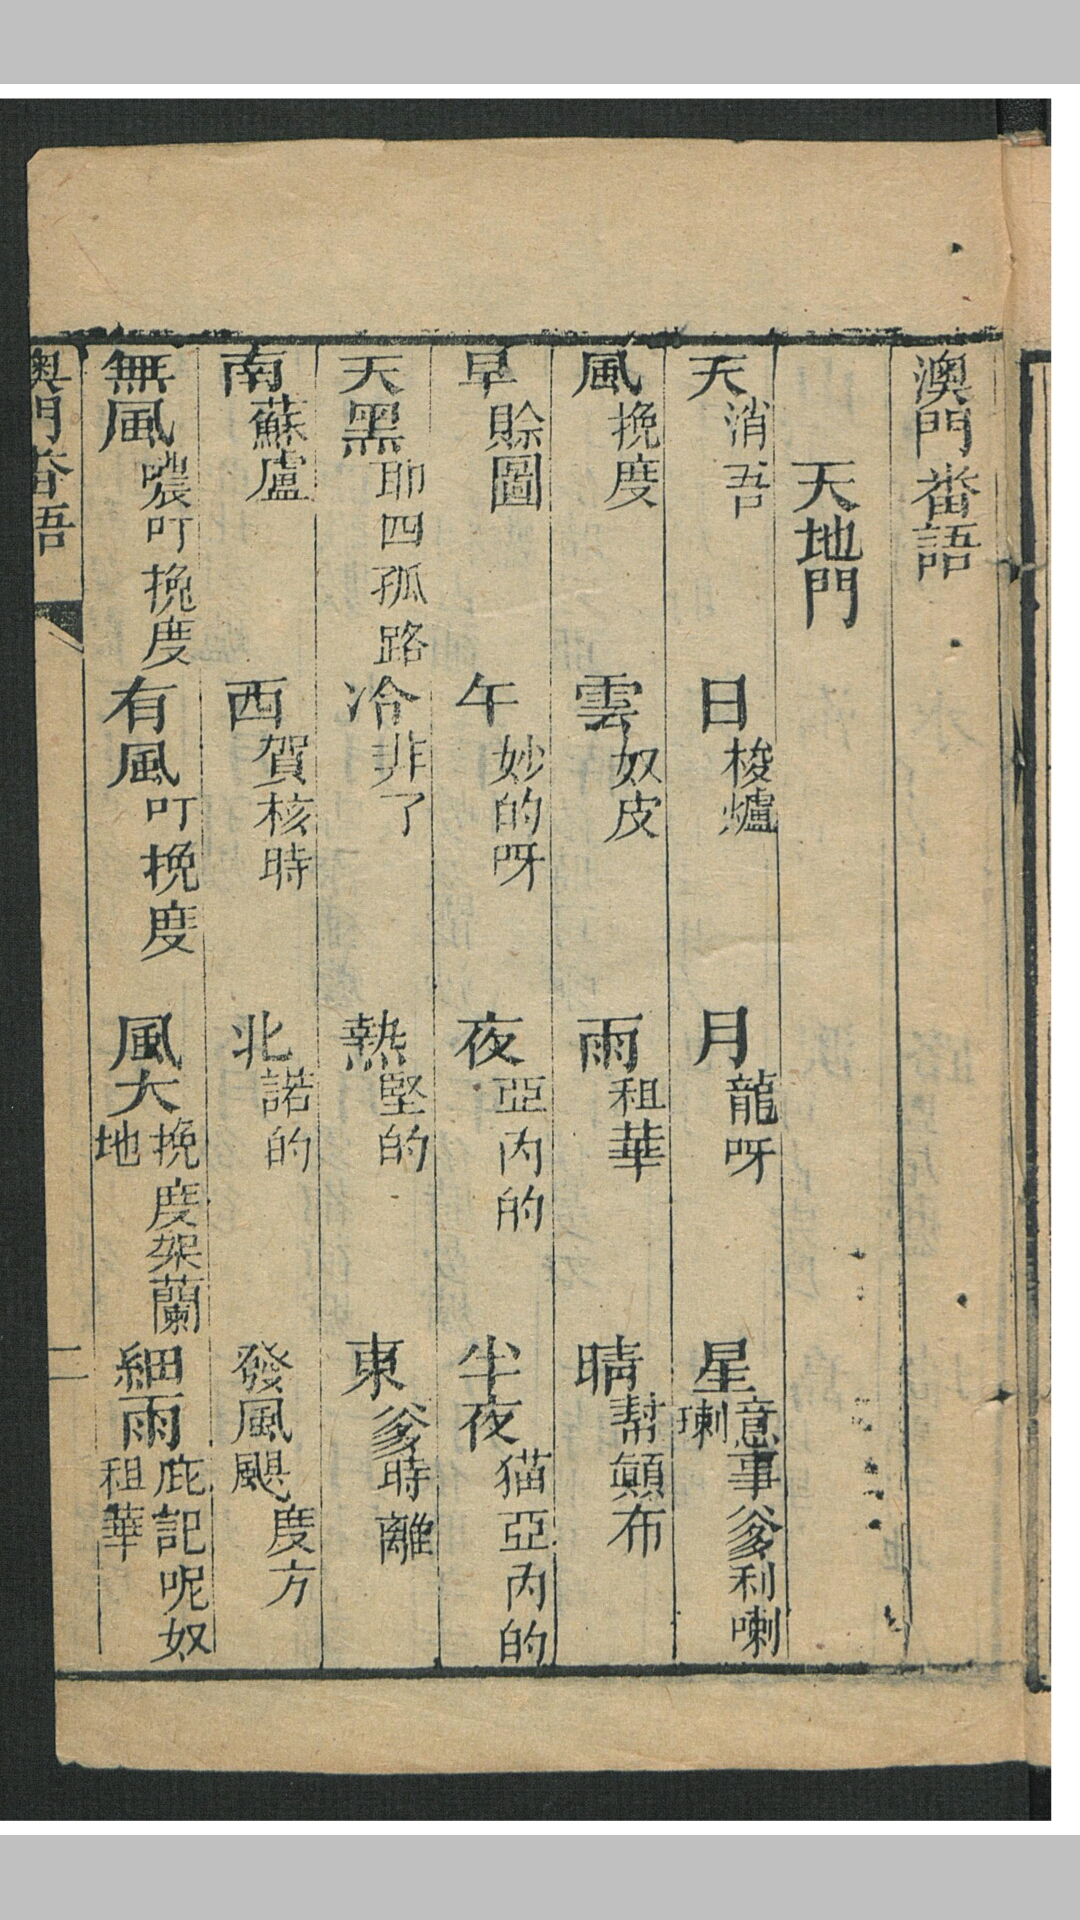 澳門番語
天地門
天 消吾 日 梭爐 月 龍呀 星 意事爹利喇喇
風 挽度 雲 奴皮 雨 租華 晴 幇顛布
早 賒圖 午 妙的呀 夜 亞内的 半夜 猫亞内的
天黑 耶四孤路 冷 非了 熱 堅的 東 爹時離
南 蘇盧 西 賀核時 北 諾的 發風颶 度方
無風 噥叮挽度 有風 叮挽度 風大 挽度架蘭地 細雨 庇記呢奴租華
澳門番語 二